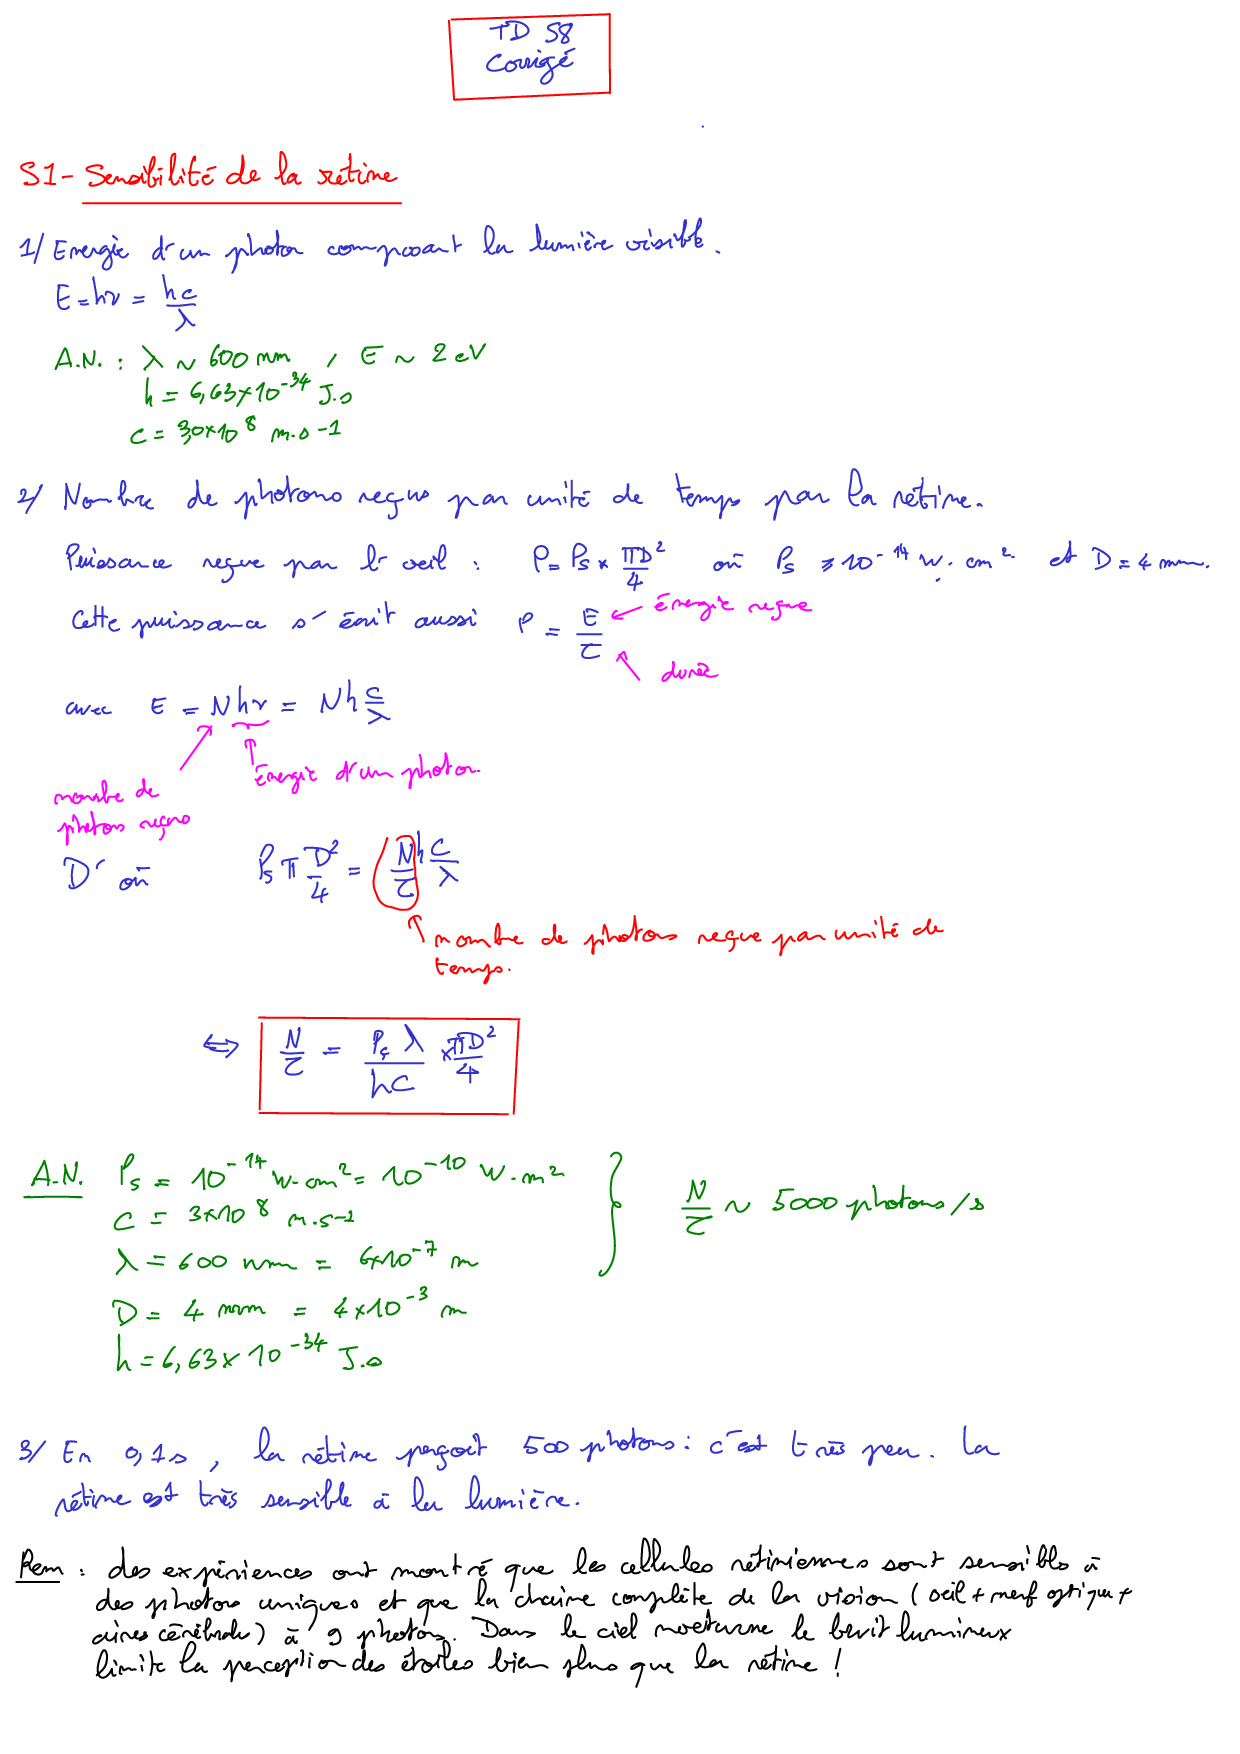 TD S8
Corrigé
S1- Sensibilité de la rétine
1/ Energie d'un photon composant la lumière visible.
E=hν = hc/λ
A.N. : λ ~ 600 nm , E ~ 2 eV
h = 6,63×10^-34 J.s
c = 3,0×10^8 m.s-1
2/ Nombre de photons reçus par unité de temps par la rétine.
Puissance reçue par l'oeil : P = Ps × πD²/4 où Ps = 10^-14 W.cm² et D = 4 mm.
Cette puissance s'écrit aussi P = E/τ ← énergie reçue
durée
avec E = Nhν = Nh c/λ
énergie d'un photon.
nombre de
photons reçus
D'où Ps π D²/4 = N/τ h c/λ
nombre de photons reçue par unité de
temps.
⇔ N/τ = Ps λ/hc × πD²/4
A.N. Ps = 10^-14 W.cm² = 10^-10 W.m²
c = 3×10^8 m.s-1
λ = 600 nm = 6×10^-7 m
D = 4 mm = 4×10^-3 m
h = 6,63×10^-34 J.s
N/τ ~ 5000 photons/s
3/ En 0,1s , la rétine perçoit 500 photons : c'est très peu. La
rétine est très sensible à la lumière.
Rem : des expériences ont montré que les cellules rétiniennes sont sensibls à
des photons uniques et que la chaine complète de la vision (oeil + nerf optique +
aires cérébrales) à 9 photons. Dans le ciel nocturne le bruit lumineux
limite la perception des étoiles bien plus que la rétine !